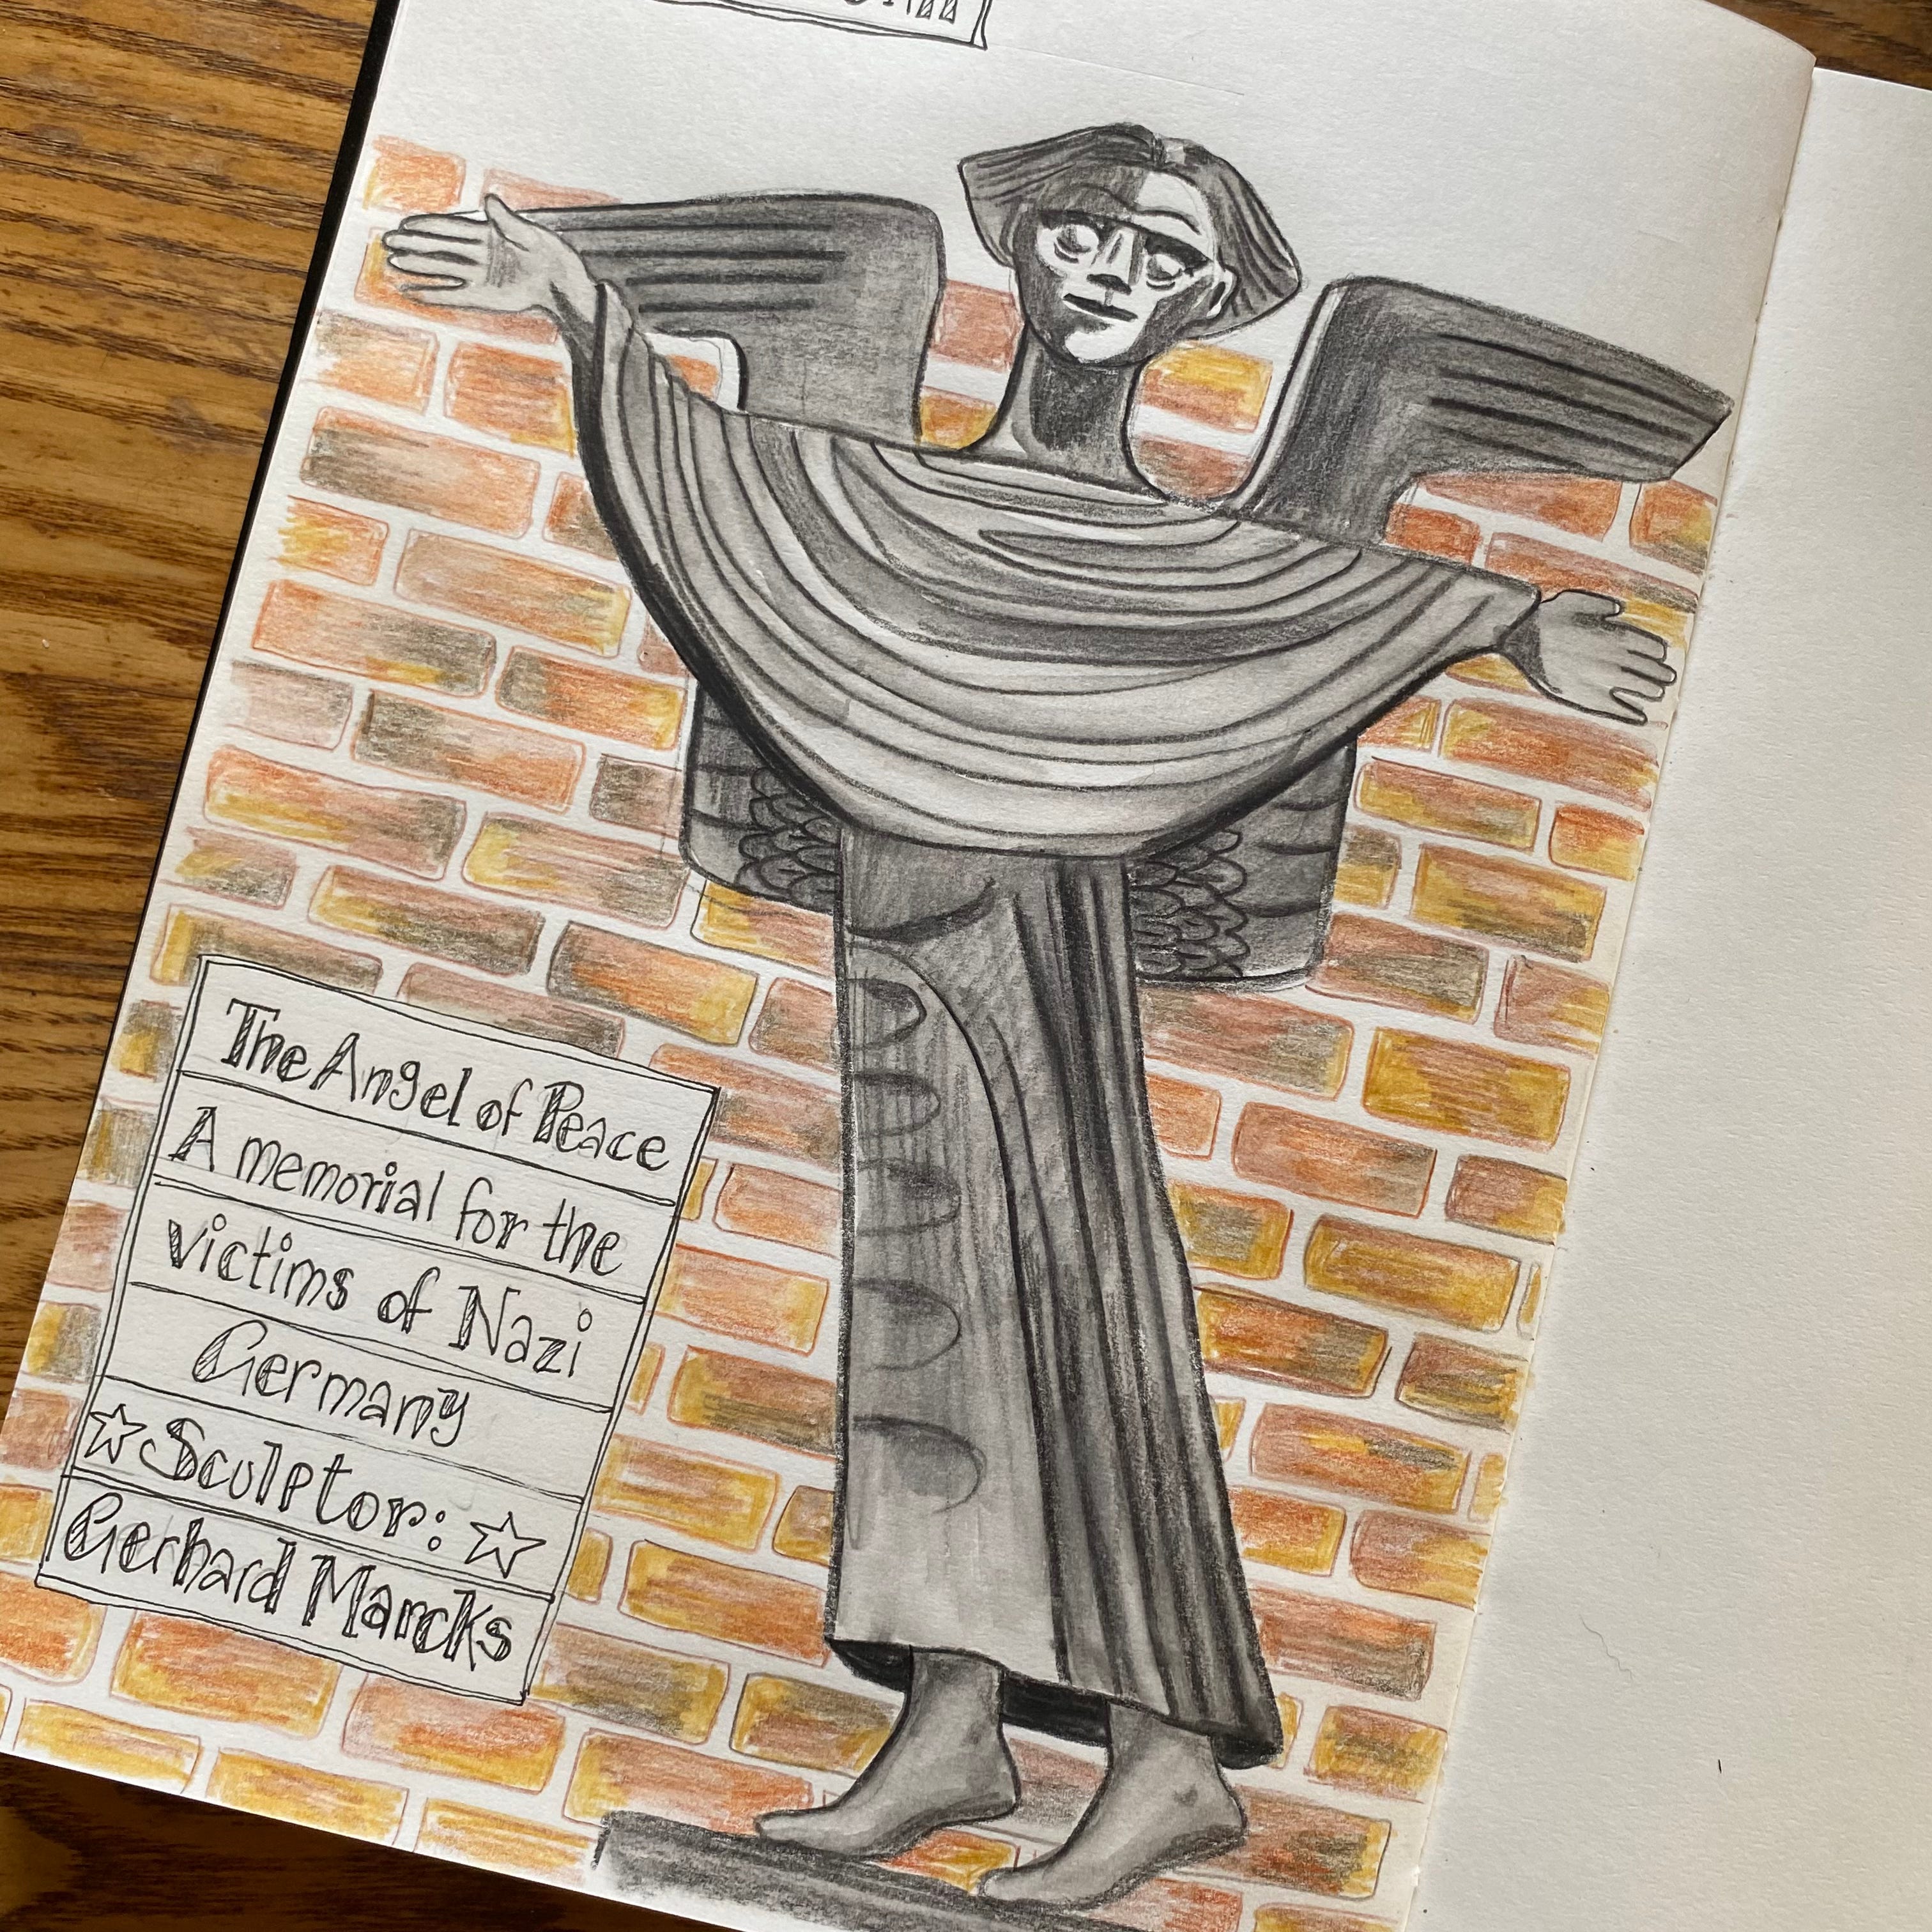 The Angel of Peace
A memorial for the
victims of Nazi
Germany
☆Sculptor:☆
Gerhard Marcks